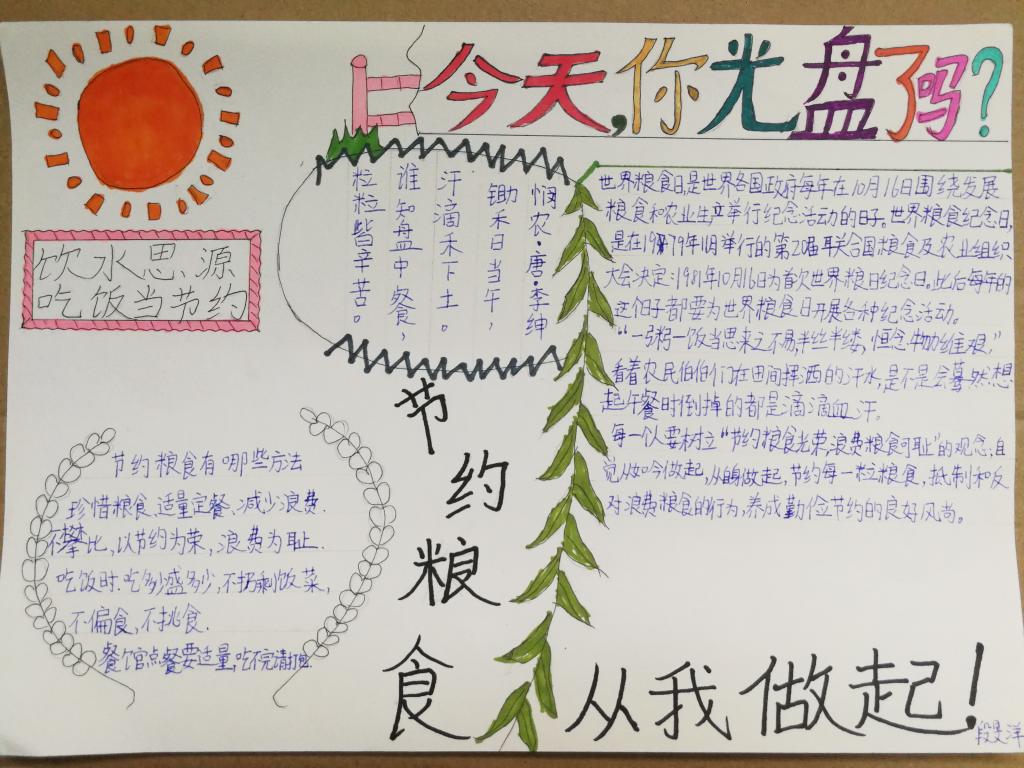 今天,你光盘了吗?
饮水思源
吃饭当节约
悯农·唐·李绅
锄禾日当午,
汗滴禾下土。
谁知盘中餐,
粒粒皆辛苦。
世界粮食日是世界各国政府每年在10月16日围绕发展
粮食和农业生产举行纪念活动的日子。世界粮食纪念日,
是在1979年11月举行的第20届联合国粮食及农业组织
大会决定:1981年10月16日为首次世界粮日纪念日。此后每年的
这个日子都要为世界粮食日开展各种纪念活动。
“一粥一饭当思来之不易,半丝半缕,恒念物力维艰,”
看着农民伯伯们在田间挥洒的汗水,是不是会蓦然想
起午餐时倒掉的都是滴滴血汗。
每一个人要树立“节约粮食光荣,浪费粮食可耻”的观念,自
觉从如今做起,从自身做起,节约每一粒粮食,抵制和反
对浪费粮食的行为,养成勤俭节约的良好风尚。
节约粮食有哪些方法
珍惜粮食,适量定餐、减少浪费.
不攀比,以节约为荣,浪费为耻.
吃饭时.吃多少盛多少,不扔剩饭菜,
不偏食,不挑食.
餐饮店点餐要适量,吃不完请打包.
节约粮食
从我做起!
段昊洋